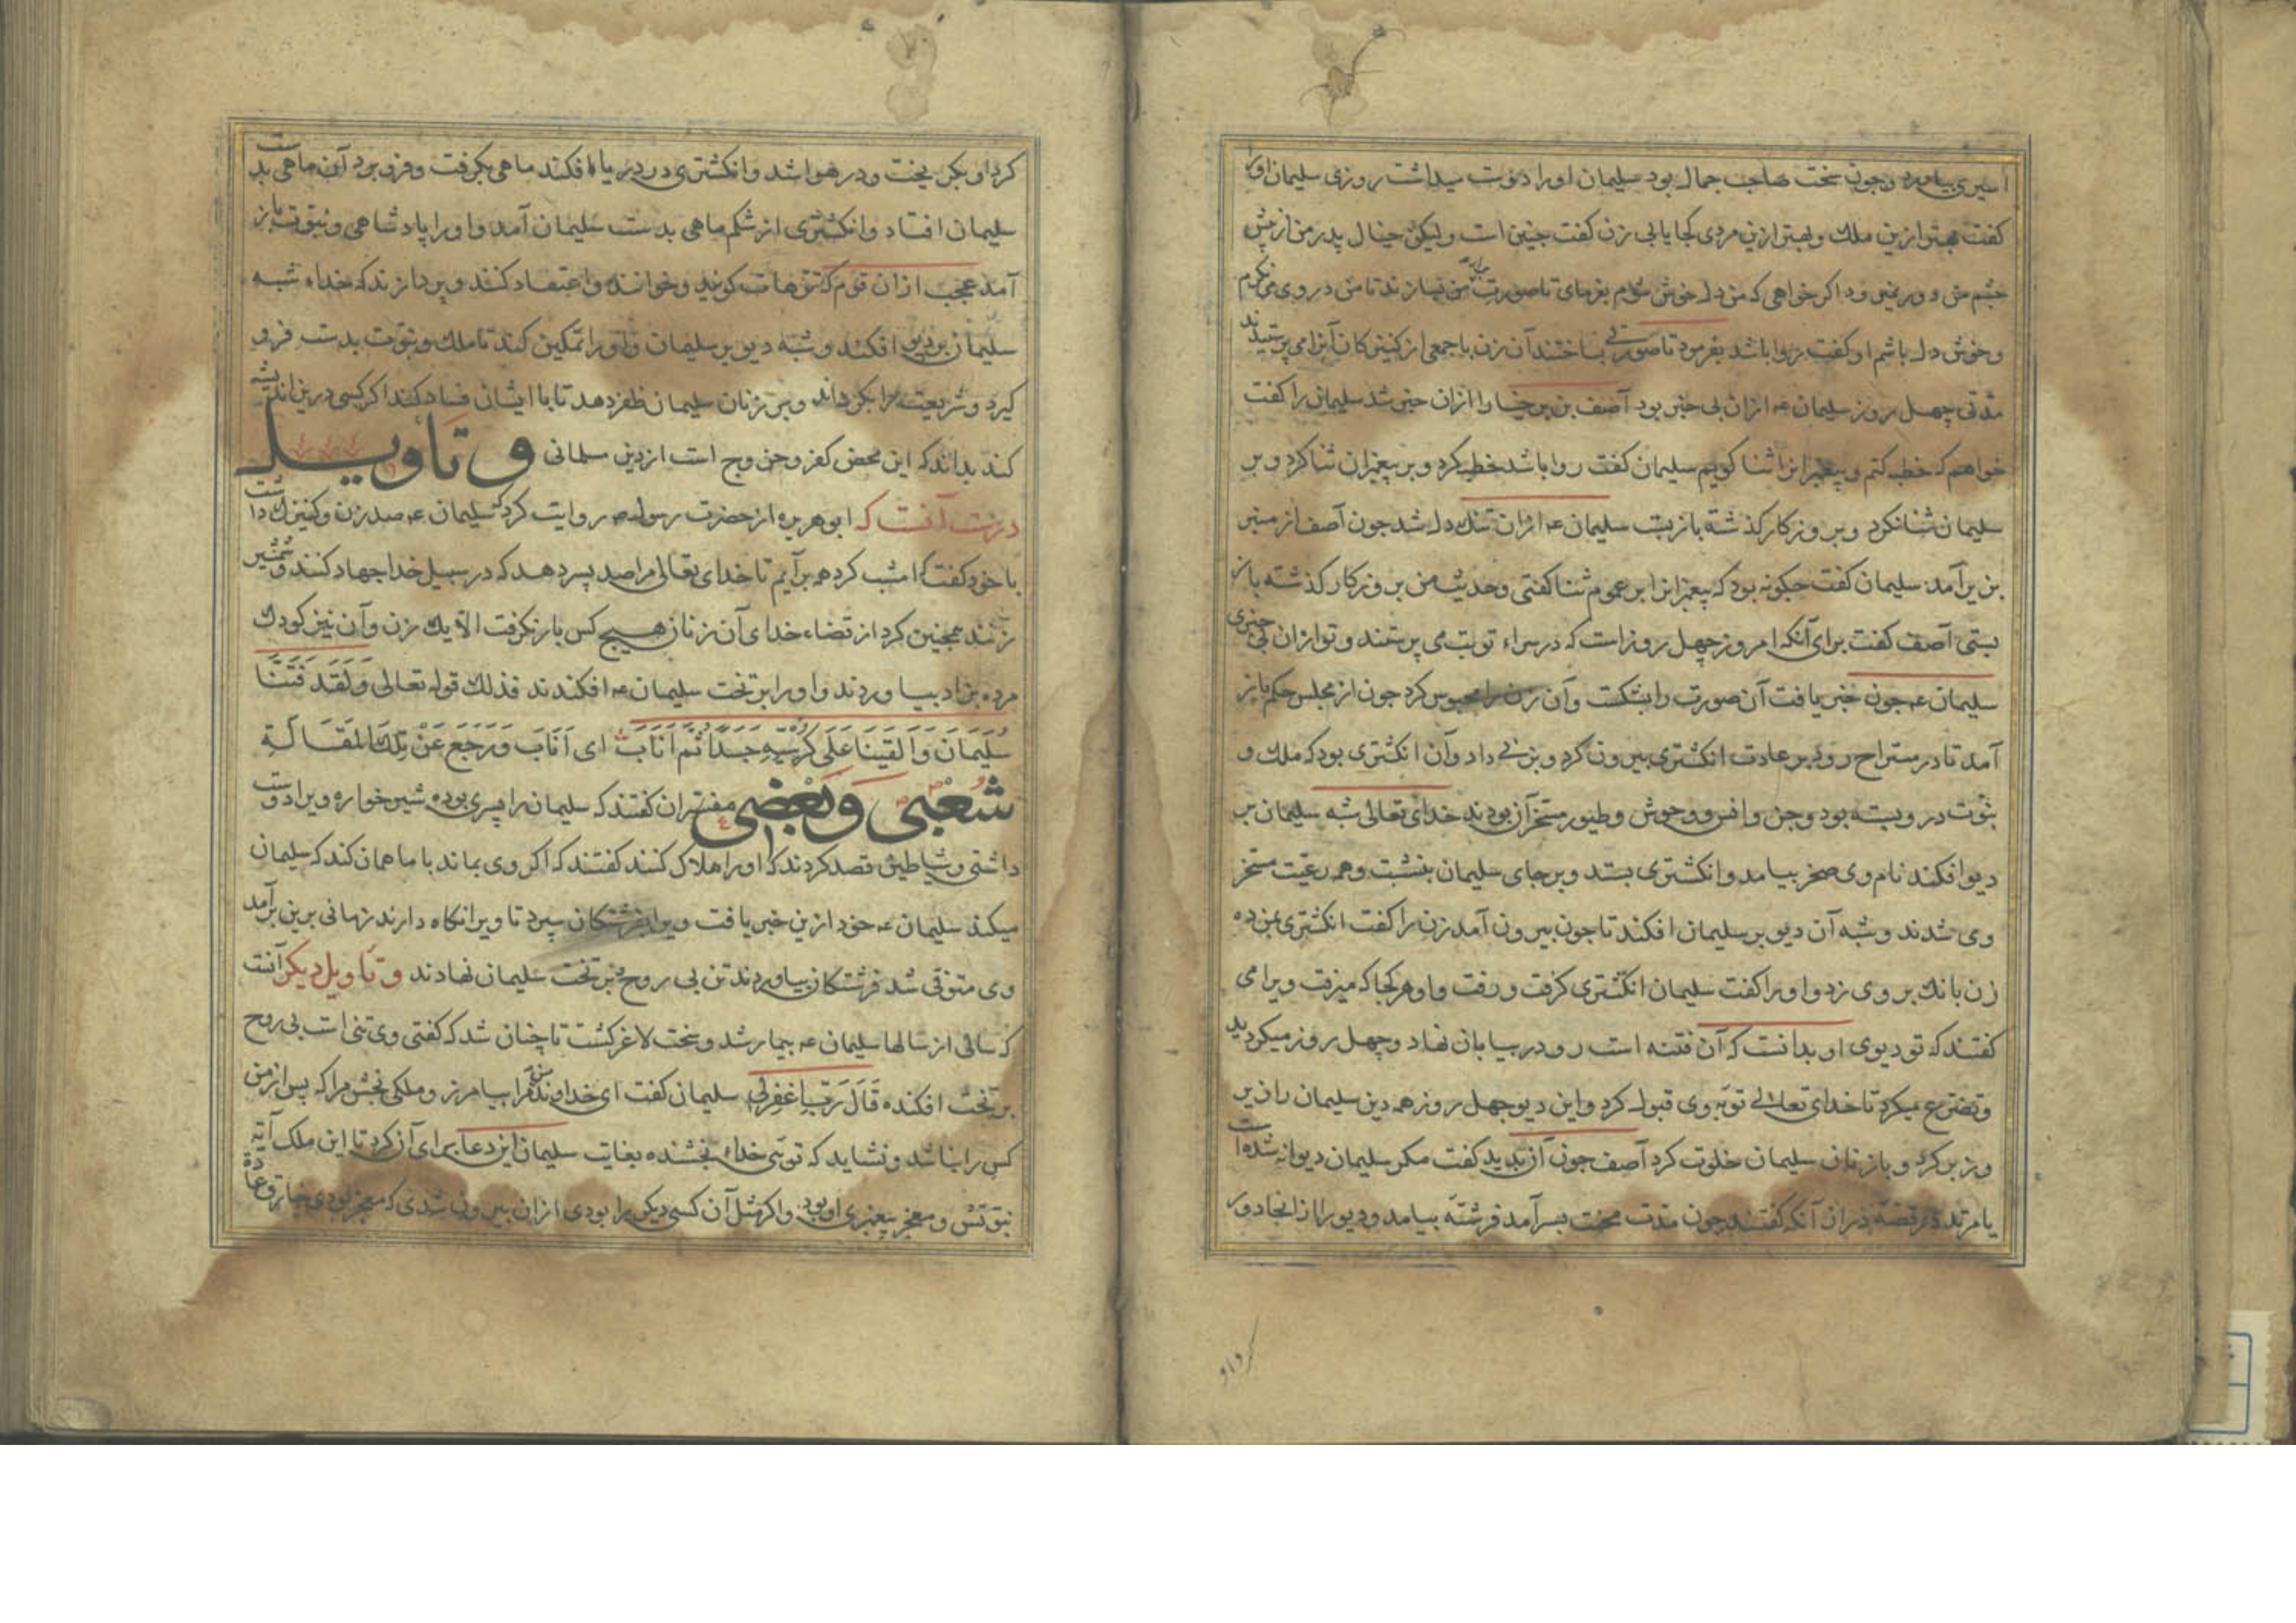 اسیری بیاورد و جون سخت صاحب جمال بود سلیمان اورا دوست میداشت روزی سلیمان اورا
کفت بهتر ازین ملک و بهتر ازین مردی کجا یابی زن کفت جنین است ولیکن خیال پدر من از پیش
جشم من دور نمی‌رود اکر خواهی که من دل خوش شوم بفرمای تا صورت پدرم من بسازند تا من در وی می نکرم
و خوش دل باشم او کفت روا باشد بفرمود تا صورتی بساختند آن زن با جمعی از کنیزکان آنرا می پرستیدند
مدتی چهل روز سلیمان عه ازان بی خبر بود آصف بن برخیا را ازان خبر شد سلیمان را کفت
خواهم که خطبه کنم و پیغمبرانرا ثنا کویم سلیمان کفت روا باشد خطبه کرد و بر پیغمبران ثنا کرد و بر
سلیمان ثنا نکرد و بروزکار کذشته بازبست سلیمان عه ازان تنک دل شد جون آصف از منبر
بزیر آمد سلیمان کفت جکونه بود که پیغمبرانرا بر عموم ثنا کفتی و حدیث من بروزکار کذشته باز
بستی آصف کفت برای آنکه امروز چهل روز است که در سراء تو بت می پرستند و تو ازان بی خبری
سلیمان عه جون خبر یافت آن صورت را بشکست و آن زن را محبوس کرد جون از مجلس حکم باز
آمد تا در مستراح رود بر عادت انکشتری بیرون کرد و بزنی داد و آن انکشتری بود که ملک و
نبوت در و بسته بود و جن و انس و وحوش و طیور مسخر آن بودند خدای تعالی شبه سلیمان بر
دیو افکند نام وی صخر بیامد و انکشتری بستد و بر جای سلیمان بنشست و همه رعیت مسخر
وی شدند و شبه آن دیو بر سلیمان افکند تا جون بیرون آمد زن را کفت انکشتری بمن ده
زن بانک بر وی زد و اورا کفت سلیمان انکشتری کرفت و رفت و او هر کجا که میرفت ویرا می
کفتند که تو دیوی او بدانست که آن فتنه است رو در بیابان نهاد و چهل روز میکردید
و تضرع میکرد تا خدای تعالی توبه وی قبول کرد و این دیو چهل روز همه دین سلیمان را زیر
و زبر کرد و با زنان سلیمان خلوت کرد آصف جون آن بدید کفت مکر سلیمان دیوانه شده است
یا مرتد در قصه دران آنکه کفتند جون مدت محنت بسر آمد فرشته بیامد و دیو را از انجا دور
کرد او
کرد او بکریخت و در هوا شد و انکشتری در دریا افکند ماهی بکرفت و فرو برد آن ماهی بدست
سلیمان افتاد و انکشتری از شکم ماهی بدست سلیمان آمد و اورا پادشاهی و نبوت باز
آمد عجب ازان قوم که ترهات کویند و خوانند و اعتقاد کنند و پردازند که خداء شبه
سلیمان بر دیو افکند و شبه دیو بر سلیمان و اورا تمکین کند تا ملک و نبوت بدست فرو
کیرد و شریعت را بکرداند و بر زنان سلیمان ظفر دهد تا با ایشان فساد کند اکر کسی درین اندیشه
کند بداند که این محض کفر و خروج است از دین مسلمانی و تاویل
درست آنست که ابو هریره از حضرت رسول صه روایت کرد که سلیمان عه صد زن و کنیزک داشت
با خود کفت که امشب کرد همه برآیم تا خدای تعالی مرا صد پسر دهد که در سبیل خدا جهاد کنند و شمشیر
زنند همجنین کرد از قضاء خدای آن زنان هیچ کس بار نکرفت الا یک زن و آن نیز کودک
مرده بزاد بیاوردند و اورا بر تخت سلیمان عه افکندند فذلک قوله تعالی وَلَقَدْ فَتَنَّا
سُلَیْمَانَ وَاَلْقَیْنَا عَلَی کُرْسِیِّهِ جَسَدًا ثُمَّ اَنَابَ ای اَنَابَ وَرَجَعَ عَنْ تِلْکَ المَقَالَةِ
شعبی و بعضی مفسران کفتند که سلیمان را پسری بوده شیر خواره ویرا دوست
داشتی و شیاطین قصد کردند که اورا هلاک کنند کفتند که اکر وی بماند با ما همان کند که سلیمان
میکند سلیمان عه خود ازین خبر یافت ویرا بفرشتکان سپرد تا ویرا نکاه دارند زمانی برین برآمد
وی متوفی شد فرشتکان بیاوردند تن بی روح بر تخت سلیمان نهادند و تاویل دیکر آنست
که سالی از سالها سلیمان عه بیمار شد و سخت لاغر کشت تا چنان شد که کفتی وی تنی است بی روح
بر تخت افکنده قَالَ رَبِّ اغْفِرْلِی سلیمان کفت ای خداوند من مرا بیامرز و ملکی بخش مرا که پس از من
کس را نباشد و نشاید که توئی خداء بخشنده بغایت سلیمان این دعا برای آن کرد تا این ملک آیة
نبوتش و معجز پیغمبری او بود و اکر مثل آن کسی دیکر را بودی ازان بیرون شدی که معجز بودی خارق عادة